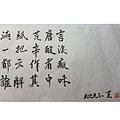 满紙荒唐言
一把辛酸淚
都云作者痴
誰解其中味